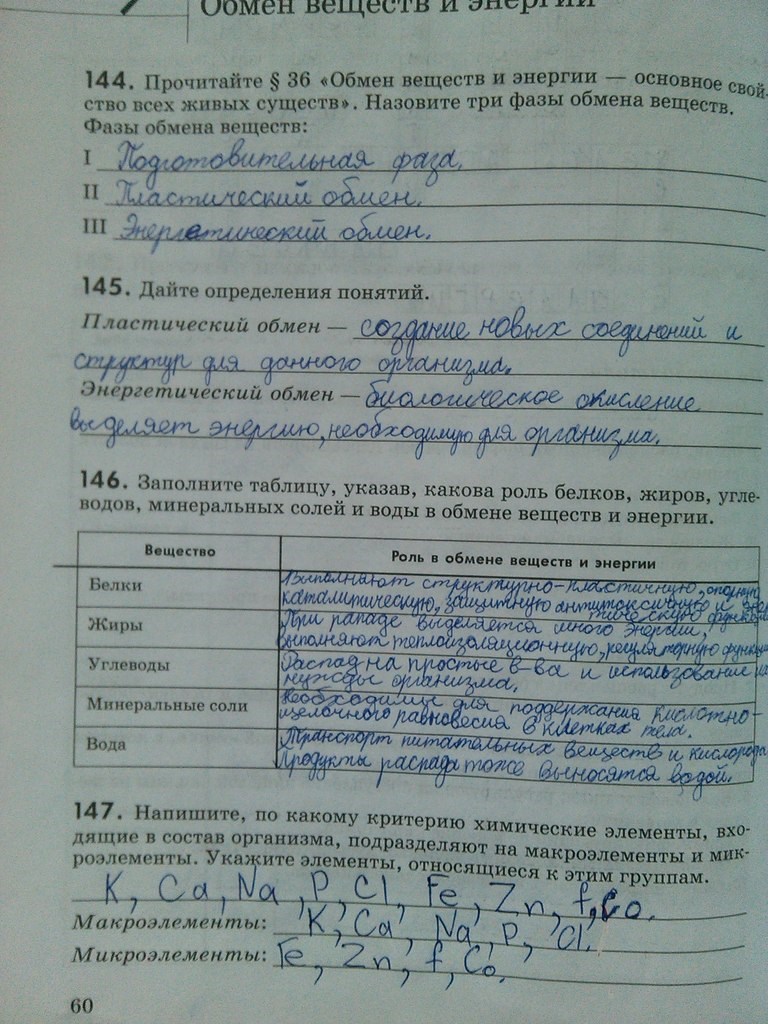 Обмен веществ и энергии
144. Прочитайте § 36 «Обмен веществ и энергии — основное свой-
ство всех живых существ». Назовите три фазы обмена веществ.
Фазы обмена веществ:
I Подготовительная фаза.
II Пластический обмен.
III Энергетический обмен.
145. Дайте определения понятий.
Пластический обмен — создание новых соединений и
структур для данного организма.
Энергетический обмен — биологическое окисление
выделяет энергию, необходимую для организма.
146. Заполните таблицу, указав, какова роль белков, жиров, угле-
водов, минеральных солей и воды в обмене веществ и энергии.
Вещество Роль в обмене веществ и энергии
Белки Выполняют структурно-пластичную, опорную
каталитическую, защитную антитоксичную и
тическую функции
Жиры При рападе выделяется много энергии,
выполняют теплоизоляционную, регуляторную функции
Углеводы Распад на простые в-ва и использование на
нужды организма.
Минеральные соли Необходимы для поддержания кислотно-
щелочного равновесия в клетках тела.
Вода Транспорт питательных веществ и кислорода
Продукты распада тоже выносятся водой.
147. Напишите, по какому критерию химические элементы, вхо-
дящие в состав организма, подразделяют на макроэлементы и мик-
роэлементы. Укажите элементы, относящиеся к этим группам.
K, Ca, Na, P, Cl, Fe, Zn, f, Co.
Макроэлементы: K, Ca, Na, P, Cl.
Микроэлементы: Fe, Zn, f, Co.
60